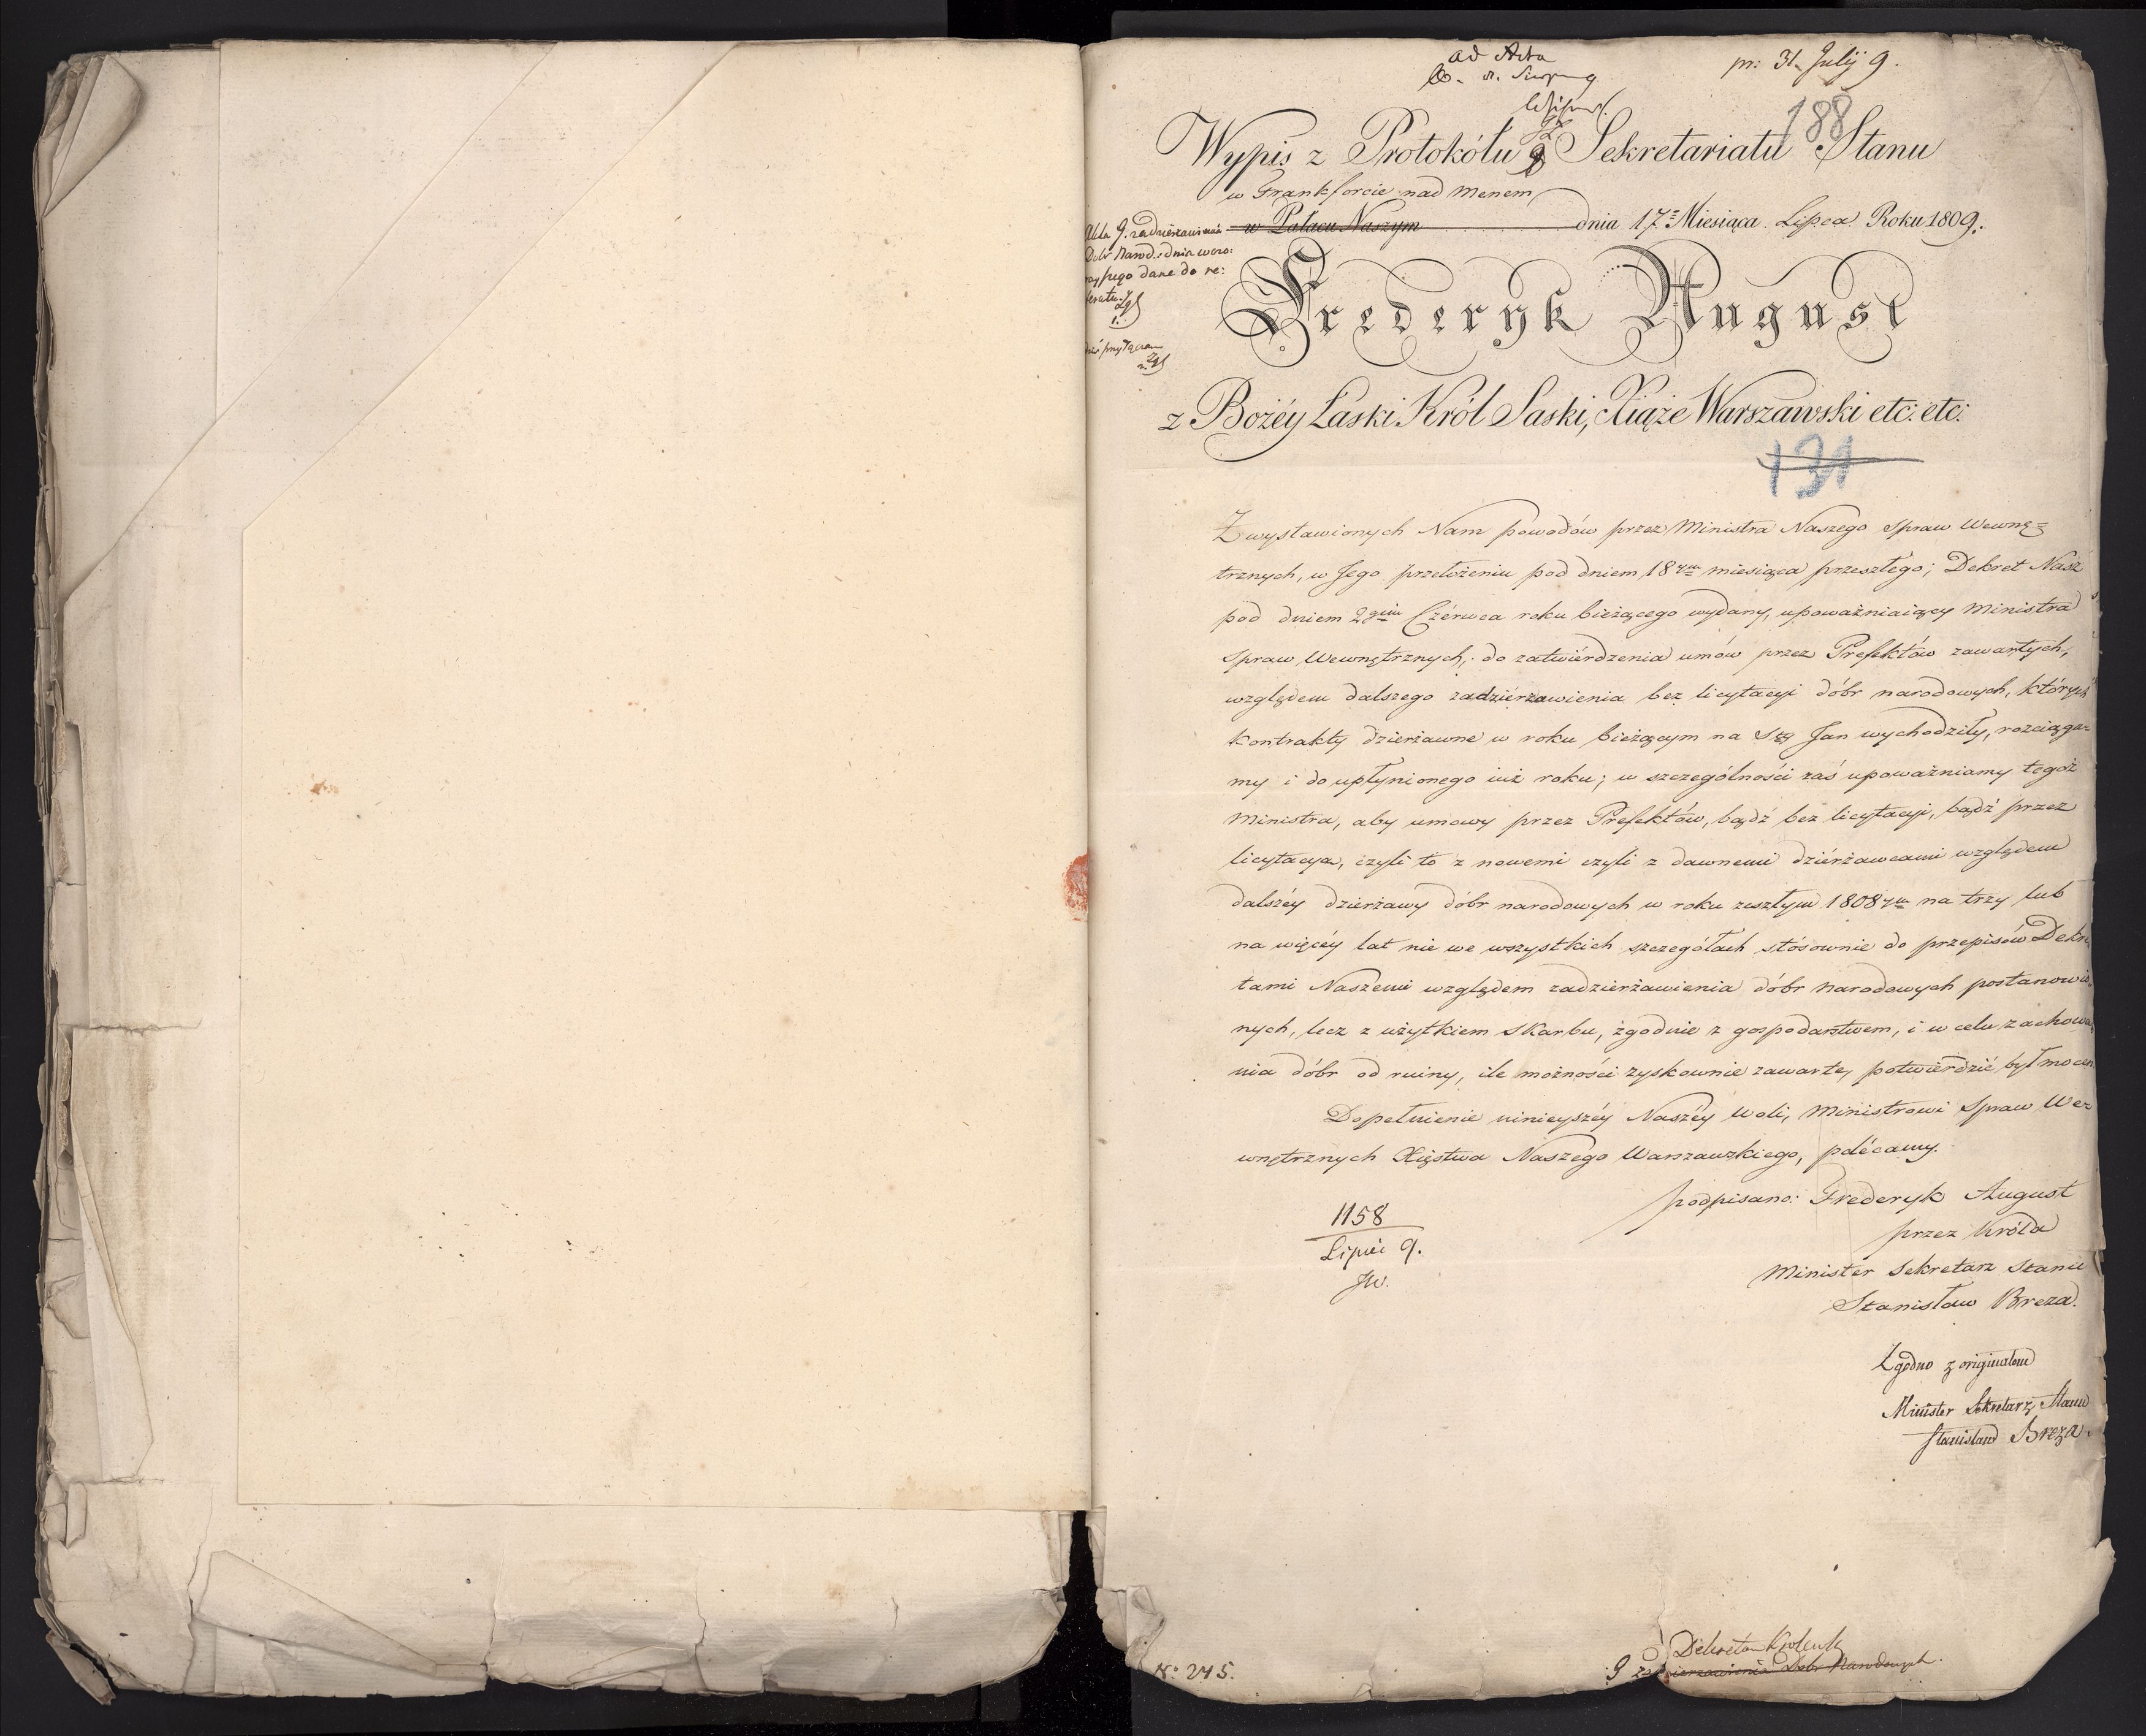 ad Acta
pr: 31. Julij 9.
188
Wypis z Protokółu Sekretariatu Stanu
w Frankforcie nad Menem
w Pałacu Naszym dnia 17. Miesiąca Lipca Roku 1809.
Akta G. zadzierzawienia
Dóbr Narod: dnia wczo:
rayszego dane do re:
feratu.
Frederyk August
z Bożéy Łaski Król Saski, Xiąże Warszawski etc: etc:
131
Z wystawionych Nam powodów przez Ministra Naszego Spraw Wewnę=
trznych, w Jego przełożeniu pod dniem 18tm miesiąca przeszłego; Dekret Nasz
pod dniem 2gim Czérwca roku bieżącego wydany, upoważniaiący Ministra
Spraw Wewnętrznych, do zatwiérdzenia umów przez Prefektów zawartych,
względem dalszego zadzierżawienia bez licytacyi dóbr narodowych, których
kontrakty dzierżawne w roku bieżącym na Sty Jan wychodziły, rozciąga=
my i do upłynionego iuż roku; w szczególności zaś upoważniamy tegoż
Ministra, aby umowy przez Prefektów, bądź bez licytacyi, bądź przez
licytacya, czyli to z nowemi czyli z dawnemi dziérżawcami względem
dalszéy dzierżawy dóbr narodowych w roku zeszłym 1808ym na trzy lub
na więcéy lat nie we wszystkich szczegółach stósownie do przepisów Dekre
tami Naszemi względem zadzierżawienia dóbr narodowych postanowio
nych, lecz z użytkiem Skarbu, zgodnie z gospodarstwem, i w celu zachowa
nia dóbr od ruiny, ile możności zyskownie zawarte, potwierdzić był mocen
Dopełnienie ninieyszéy Naszéy woli, Ministrowi Spraw We=
wnętrznych Xięstwa Naszego Warszawskiego, polécamy.
podpisano: Frederyk August
przez Króla
Minister Sekretarz Stanu
Stanisław Breza.
1158
Lipiec 9.
JW.
Zgodno z originałem
Minister Sekretarz Stanu
Stanisław Breza.
No. 245.
O Dekretów Królewsk
G zadzierzawienia Dobr Narodowych.